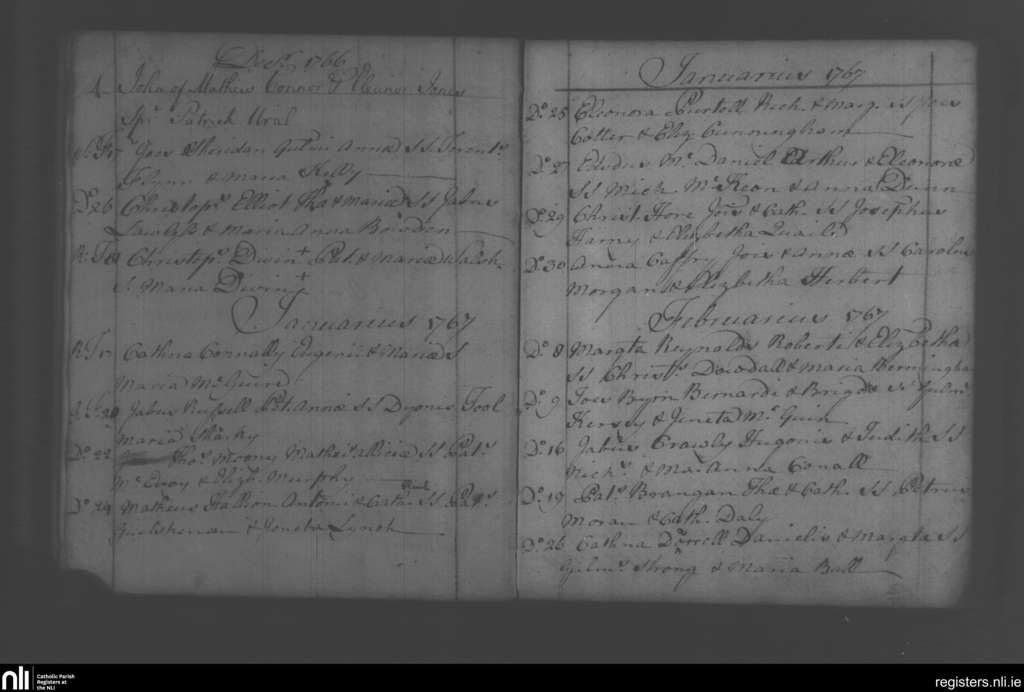 Decr. 1766
John of Mathew Connor & Eleanor Jones
Spr. Patrick Ural
17 Joes Sheridan Annæ SS
Flynn & Maria Kelly
Do. 26 Christopr. Elliot Thæ & Mariæ SS Jabus
Lawless & Maria Anna Bowden
Christopr. Divin+ Pat. & Mariæ Walsh
S. Maria Divin+
Januarius 1767
Cathna Connally Eugenii & Mariæ S
Maria McGuire
20 Jabus Russell Pat. Annæ SS Dyonis. Tool
Maria Sharky
Do. 22 Thos. Mooney Mathei Alliciæ SS Patr.
McEvoy & Elizh. Murphy
Do. 24 Matheus Antonii & Cath. SS Patr.
& Joneta Lynch
Januarius 1767
Do. 25 Eleonora Purtell Rich. & Marg. SS Joes
Cotter & Eliz Cunningham
Do. 27 Edvdus Mc. Daniel Arthur & Eleonoræ
SS Mich. Mc.Keon & Anna Divin
Do. 29 Christ. Hore Jois & Cath. SS Josephus
Harny & Elizbetha Quaile
Do. 30 Anna Caffry Jois & Annæ SS Carolus
Morgan & Elizbetha Herbert
Februarius 1767
Do. 8 Margta Reynolds Roberti & Elizbetha
SS Christr. Dowdall & Maria Bermingham
Do. 9 Joes Byrn Bernardi & Brigdæ SS
Kersey & Jeneta Mc. Guin
Do. 16 Jabus Crawly Hugonis & Judith SS
Nichs. & Mar. Anna Conall
Do. 19 Patr. Brangan Thæ & Cath. SS Petrus
Moran & Cath. Daly
Do. 26 Cathna Dorrell Danielis & Margtæ SS
Strong & Maria Ball
nli
Catholic Parish
Registers at
the NLI
registers.nli.ie